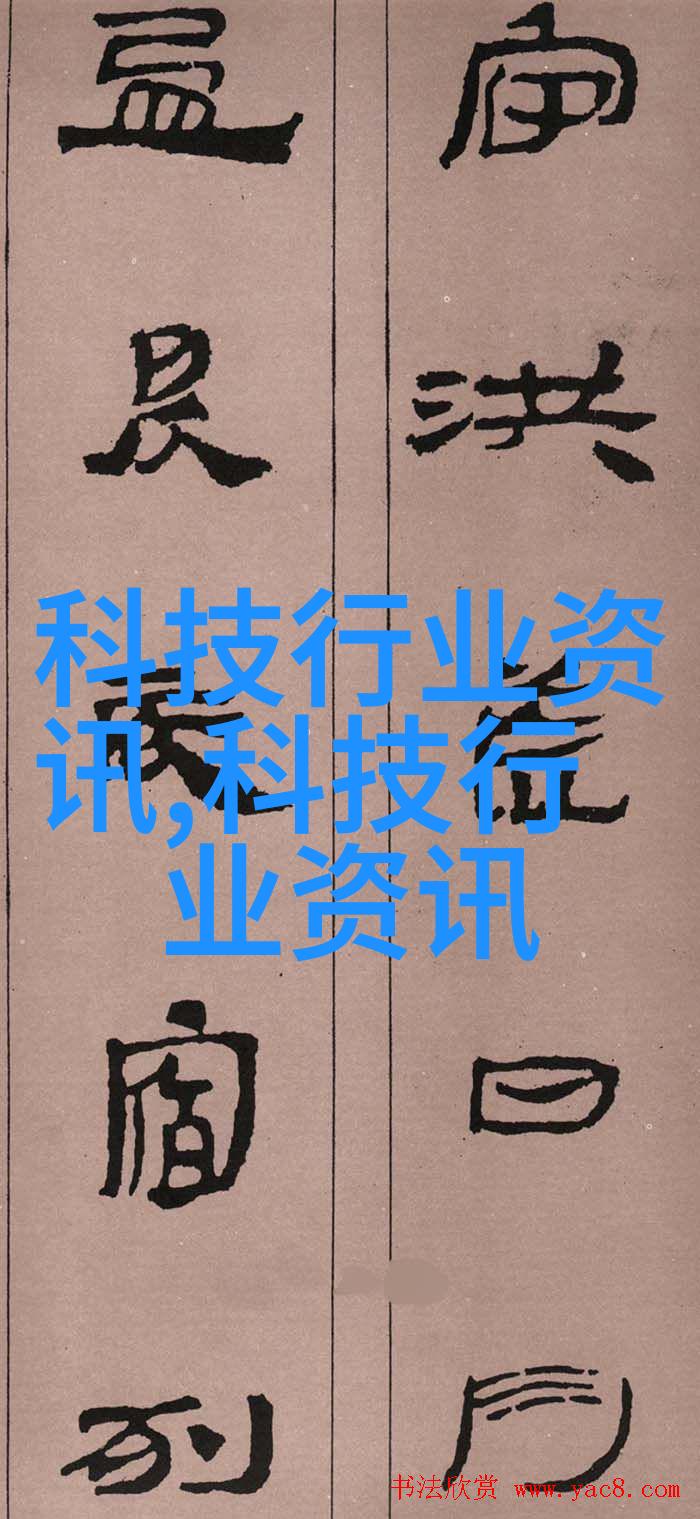 宙洪荒日月
盈昃辰宿列
科技行业资
讯,科技行
业资讯
书法欣赏 www.yac8.com